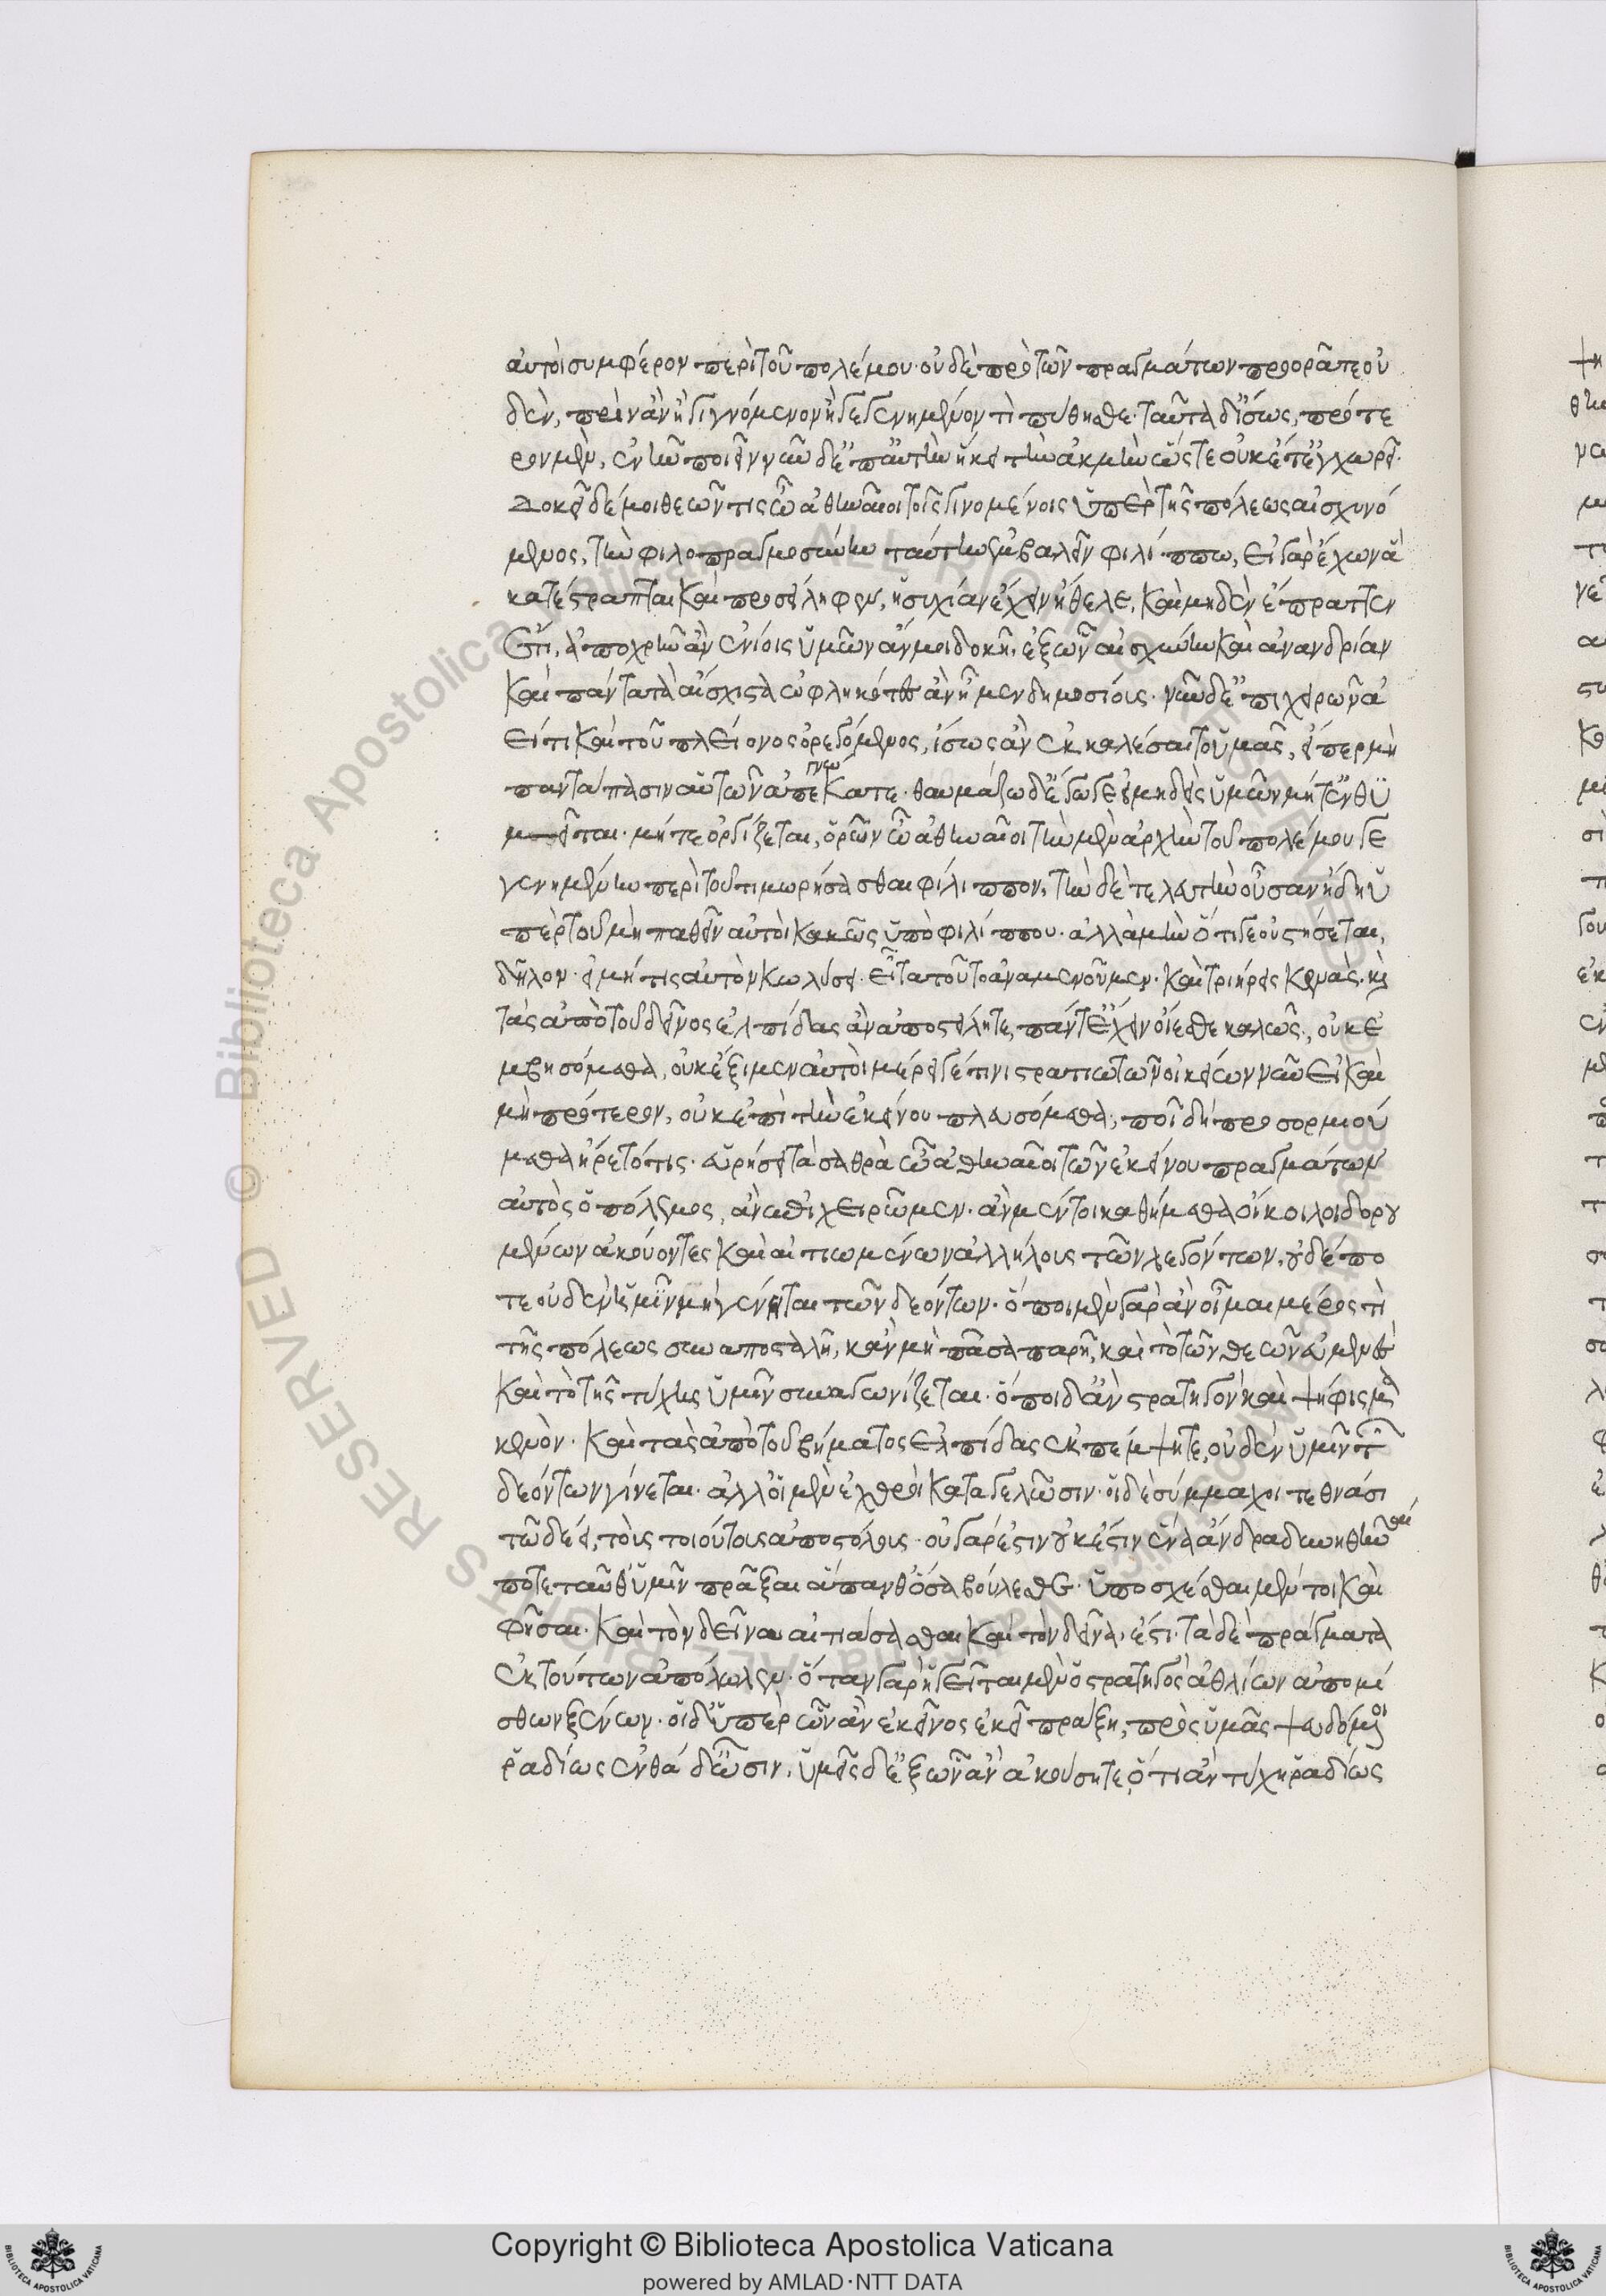 αὐτοὶ συμφέρον περὶ τοῦ πολέμου· οὐδὲ πρὸ τῶν πραγμάτων προορᾶτε οὐ
δὲν, πρὶν ἂν ἢ γιγνόμενον ἢ γεγενημένον τὶ πύθησθε· ταῦτα δ' ἴσως, πρότε
ρον μὲν, ἐνῆν ποιεῖν νῦν δ' ἐπ' αὐτὴν ἥκει τὴν ἀκμὴν ὥστε οὐκέτ' ἐγχωρεῖ·
Δοκεῖ δέ μοι θεῶν τις ὦ ἀθηναῖοι τοῖς γινομένοις ὑπὲρ τῆς πόλεως αἰσχυνό
μενος, τὴν φιλοπραγμοσύνην ταύτην ἐμβαλεῖν φιλίππω, εἰ γὰρ ἔχων ἃ
κατέστραπται καὶ προσείληφεν, ἡσυχίαν ἔχειν ἤθελε, καὶ μηδὲν ἔπραττεν
ἔτι, ἀποχρῆν ἂν ἐνίοις ὑμῶν ἄν μοι δοκῆ, ἐξ ὧν αἰσχύνην καὶ ἀνανδρίαν
καὶ πάντα τὰ αἴσχιστα ὠφληκότες ἂν ἦμεν δημοσίοις· νῦν δ' ἐπιχειρῶν ἀ
εί τι καὶ τοῦ πλείονος ὀρεγόμενος, ἴσως ἂν ἐκκαλέσαιτο ὑμᾶς, εἴπερ μὴ
παντάπασιν αὑτῶν ἀπεγνώκατε· θαυμάζω δ' ἔγωγε εἰ μηδεὶς ὑμῶν μήτ' ἐνθυ
μεῖται· μήτε ὀργίζεται, ὁρῶν ὦ ἀθηναῖοι τὴν μὲν ἀρχὴν τοῦ πολέμου γε
γενημένην περὶ τοῦ τιμωρήσασθαι φίλιππον, τὴν δὲ τελευτὴν οὖσαν ἤδη ὑ
πὲρ τοῦ μὴ παθεῖν αὐτοὶ κακῶς ὑπὸ φιλίππου· ἀλλὰ μὴν ὅτι γε οὐ στήσεται,
δῆλον· εἰ μή τις αὐτὸν κωλύσει· εἶτα τοῦτο ἀναμενοῦμεν· καὶ τριήρεις κενὰς· καὶ
τὰς ἀπὸ τοῦ δεῖνος ἐλπίδας ἂν ἀποστείλητε, πάντ' ἔχειν οἴεσθε καλῶς, οὐκ ἐ
μβησόμεθα, οὐκ ἔξιμεν αὐτοὶ μέρει γέ τινι στρατιωτῶν οἰκείων νῦν εἰ καὶ
μὴ πρότερον, οὐκ ἐπὶ τὴν ἐκείνου πλευσόμεθα, ποῖ δὴ προσορμιού
μεθα ἤρετό τις· εὑρήσει τὰ σαθρὰ ὦ ἀθηναῖοι τῶν ἐκείνου πραγμάτων
αὐτὸς ὁ πόλεμος, ἂν ἐπιχειρῶμεν· ἂν μέντοι καθήμεθα οἴκοι λοιδορου
μένων ἀκούοντες καὶ αἰτιωμένων ἀλλήλους τῶν λεγόντων, οὐδέπο
τε οὐδὲν ὑμῖν μὴ γένηται τῶν δεόντων· ὅποι μὲν γὰρ ἂν οἶμαι μέρος τὶ
τῆς πόλεως συναποσταλῆ, κἂν μὴ πᾶσα παρῆ, καὶ τὸ τῶν θεῶν εὐμενὲς
καὶ τὸ τῆς τύχης ὑμῖν συναγωνίζεται· ὅποι δ' ἂν στρατηγὸν καὶ ψήφισμα
κενὸν· καὶ τὰς ἀπὸ τοῦ βήματος ἐλπίδας ἐκπέμψητε, οὐδὲν ὑμῖν τῶν
δεόντων γίνεται· ἀλλ' οἱ μὲν ἐχθροὶ καταγελῶσιν· οἱ δὲ σύμμαχοι τεθνᾶσι
τῷ δέει, τοὺς τοιούτους ἀποστόλους· οὐ γὰρ ἔστιν οὐκ ἔστιν ἕνα ἄνδρα δυνηθῆναί
ποτε ταῦθ' ὑμῖν πρᾶξαι ἅπανθ' ὅσα βούλεσθε· ὑποσχέσθαι μέντοι καὶ
φῆσαι· καὶ τὸν δεῖνα αἰτιάσασθαι καὶ τὸν δεῖνα, ἔστι· τὰ δὲ πράγματα
ἐκ τούτων ἀπόλωλεν· ὅταν γὰρ ἡγεῖται μὲν ὁ στρατηγὸς ἀθλίων ἀπομί
σθων ξένων· οἱ δ' ὑπὲρ ὧν ἂν ἐκεῖνος ἐκεῖ πράξη, πρὸς ὑμᾶς ψευδόμενοι
ῥαδίως ἐνθάδ' ὦσιν, ὑμεῖς δ' ἐξ ὧν ἂν ἀκούσητε, ὅτι ἂν τύχη ῥαδίως
Copyright © Biblioteca Apostolica Vaticana
powered by AMLAD·NTT DATA